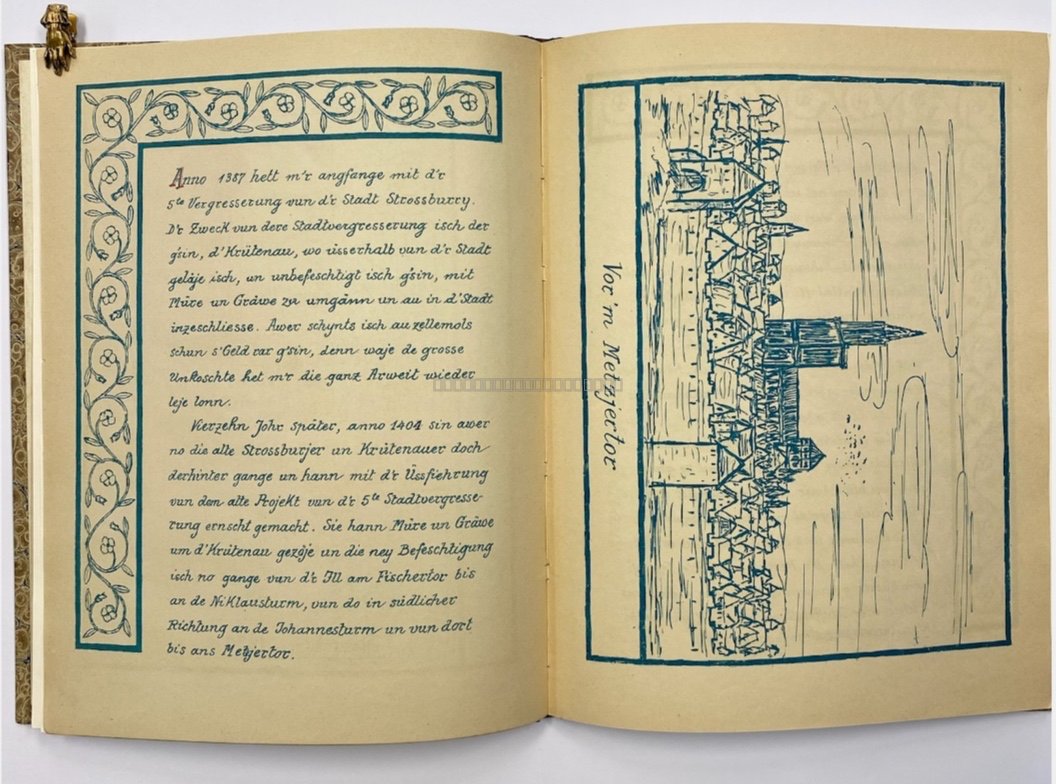 Anno 1387 hett m'r angfange mit d'r
5te Vergresserung vun d'r Stadt Strossburry.
D'r Zweck vun dere Stadtvergresserung isch der
g'sin, d'Krütenau, wo üsserhalb vun d'r Stadt
geläje isch, un unbefeschtigt isch g'sin, mit
Müre un Gräwe zu umgänn un au in d'Stadt
inzeschliesse. Awer schynts isch au zellemols
schun s'Geld rar g'sin, denn waje de grosse
Unkoschte het m'r die ganz Arweit wieder
leje lonn.
Vierzehn Johr später, anno 1404 sin awer
no die alte Strossburjer un Krütenauer doch
derhinter gange un hann mit d'r Üssfiehrung
vun dem alte Projekt vun d'r 5te Stadtvergresse-
rung ernscht gemacht. Sie hann Müre un Gräwe
um d'Krütenau gezöje un die ney Befeschtigung
isch no gange vun d'r Ill am Fischertor bis
an de Niklausturm, vun do in südlicher
Richtung an de Johannesturm un vun dort
bis ans Metzjertor.
Vor'm Metzjertor